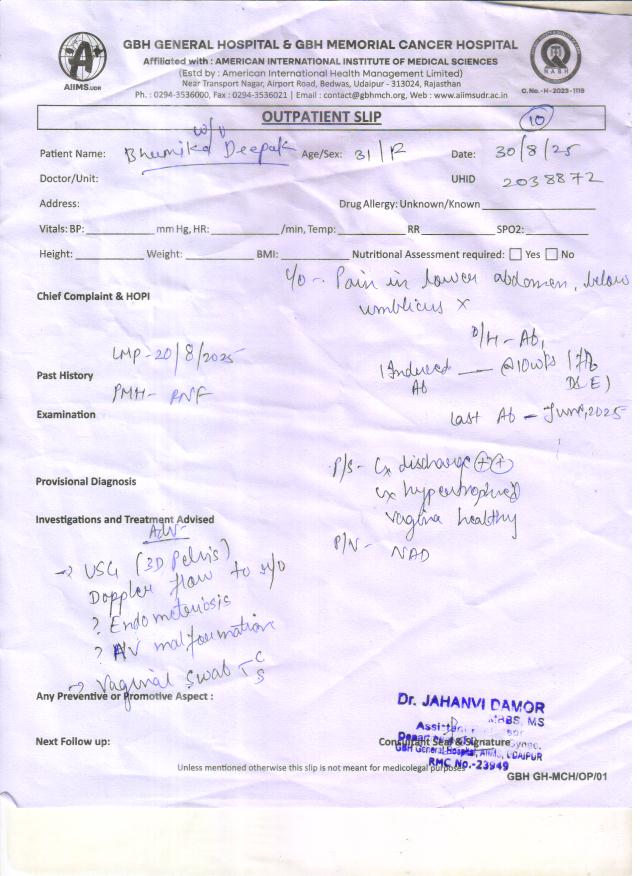 GBH GENERAL HOSPITAL & GBH MEMORIAL CANCER HOSPITAL
Affiliated with : AMERICAN INTERNATIONAL INSTITUTE OF MEDICAL SCIENCES
(Estd by : American International Health Management Limited)
Near Transport Nagar, Airport Road, Bedwas, Udaipur - 313024, Rajasthan
Ph. : 0294-3536000, Fax : 0294-3536021 | Email : contact@gbhmch.org, Web : www.aiimsudr.ac.in
AIIMS.UDR
NABH
C.No.-H-2023-1118
OUTPATIENT SLIP
10
W/O
Patient Name: Bhumika Deepak Age/Sex: 31/F Date: 30/8/25
Doctor/Unit: UHID 2038872
Address: Drug Allergy: Unknown/Known
Vitals: BP: mm Hg, HR: /min, Temp: RR SPO2:
Height: Weight: BMI: Nutritional Assessment required: Yes No
c/o - Pain in lower abdomen, below
Chief Complaint & HOPI
umblicus X
LMP - 20/8/2025
O/H - Ab,
Past History
1 Induced Ab — @10wks
D&E)
PMH-
Examination
last Ab - June, 2025
P/S - Cx discharge ++
Provisional Diagnosis
cx hypertrophied
vagina healthy
Investigations and Treatment Advised
P/V - NAD
Adv-
→ USG (3D Pelvis)
Doppler flow to r/o
? Endometeriosis
? AV malformation
→ Vaginal Swab C/S
Any Preventive or Promotive Aspect :
Dr. JAHANVI DAMOR
MBBS, MS
Next Follow up:
Consultant Seal & Signature
GBH General Hospital, AIIMS, UDAIPUR
RMC No.-23949
Unless mentioned otherwise this slip is not meant for medicolegal purposes
GBH GH-MCH/OP/01